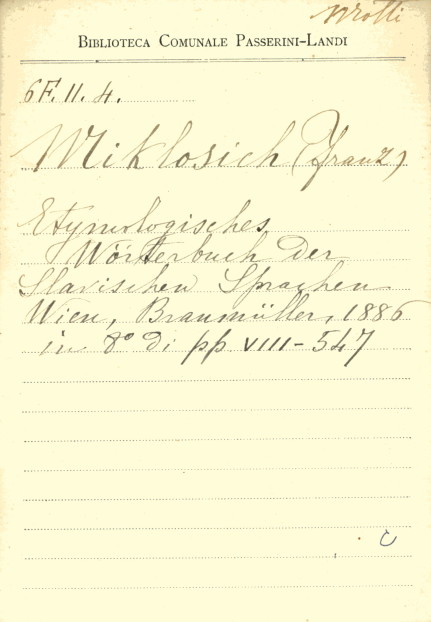 BIBLIOTECA COMUNALE PASSERINI-LANDI
6F. II. 4.
Miklosich (Franz)
Etymologisches
Wörterbuch der
Slavischen Sprachen
Wien, Braumüller, 1886
in 8° di pp VIII-547
C